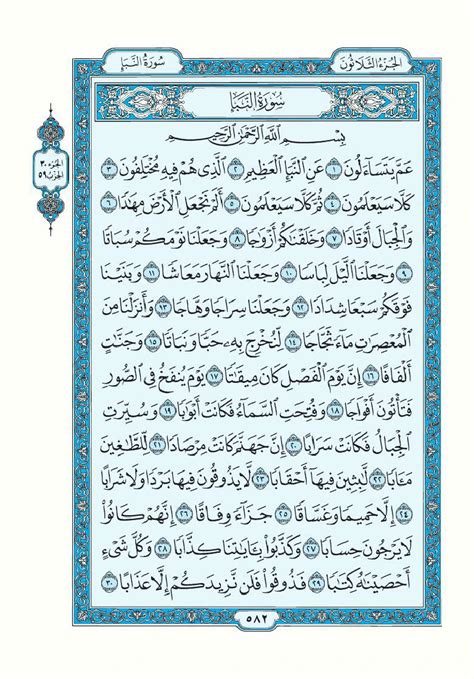 الجزء الثلاثون
سورة النبإ
سورة النبإ
بسم الله الرحمن الرحيم
الجزء ٣٠
الحزب ٥٩
عَمَّ يَتَسَآءَلُونَ ١ عَنِ ٱلنَّبَإِ ٱلْعَظِيمِ ٢ ٱلَّذِى هُمْ فِيهِ مُخْتَلِفُونَ ٣
كَلَّا سَيَعْلَمُونَ ٤ ثُمَّ كَلَّا سَيَعْلَمُونَ ٥ أَلَمْ نَجْعَلِ ٱلْأَرْضَ مِهَٰدًا ٦
وَٱلْجِبَالَ أَوْتَادًا ٧ وَخَلَقْنَٰكُمْ أَزْوَٰجًا ٨ وَجَعَلْنَا نَوْمَكُمْ سُبَاتًا
٩ وَجَعَلْنَا ٱلَّيْلَ لِبَاسًا ١٠ وَجَعَلْنَا ٱلنَّهَارَ مَعَاشًا ١١ وَبَنَيْنَا
فَوْقَكُمْ سَبْعًا شِدَادًا ١٢ وَجَعَلْنَا سِرَاجًا وَهَّاجًا ١٣ وَأَنزَلْنَا مِنَ
ٱلْمُعْصِرَٰتِ مَآءً ثَجَّاجًا ١٤ لِّنُخْرِجَ بِهِۦ حَبًّا وَنَبَاتًا ١٥ وَجَنَّٰتٍ
أَلْفَافًا ١٦ إِنَّ يَوْمَ ٱلْفَصْلِ كَانَ مِيقَٰتًا ١٧ يَوْمَ يُنفَخُ فِى ٱلصُّورِ
فَتَأْتُونَ أَفْوَاجًا ١٨ وَفُتِحَتِ ٱلسَّمَآءُ فَكَانَتْ أَبْوَٰبًا ١٩ وَسُيِّرَتِ
ٱلْجِبَالُ فَكَانَتْ سَرَابًا ٢٠ إِنَّ جَهَنَّمَ كَانَتْ مِرْصَادًا ٢١ لِّلطَّٰغِينَ
مَـَٔابًا ٢٢ لَّٰبِثِينَ فِيهَآ أَحْقَابًا ٢٣ لَّا يَذُوقُونَ فِيهَا بَرْدًا وَلَا شَرَابًا
٢٤ إِلَّا حَمِيمًا وَغَسَّاقًا ٢٥ جَزَآءً وِفَاقًا ٢٦ إِنَّهُمْ كَانُوا۟
لَا يَرْجُونَ حِسَابًا ٢٧ وَكَذَّبُوا۟ بِـَٔايَٰتِنَا كِذَّابًا ٢٨ وَكُلَّ شَىْءٍ
أَحْصَيْنَٰهُ كِتَٰبًا ٢٩ فَذُوقُوا۟ فَلَن نَّزِيدَكُمْ إِلَّا عَذَابًا ٣٠
٥٨٢